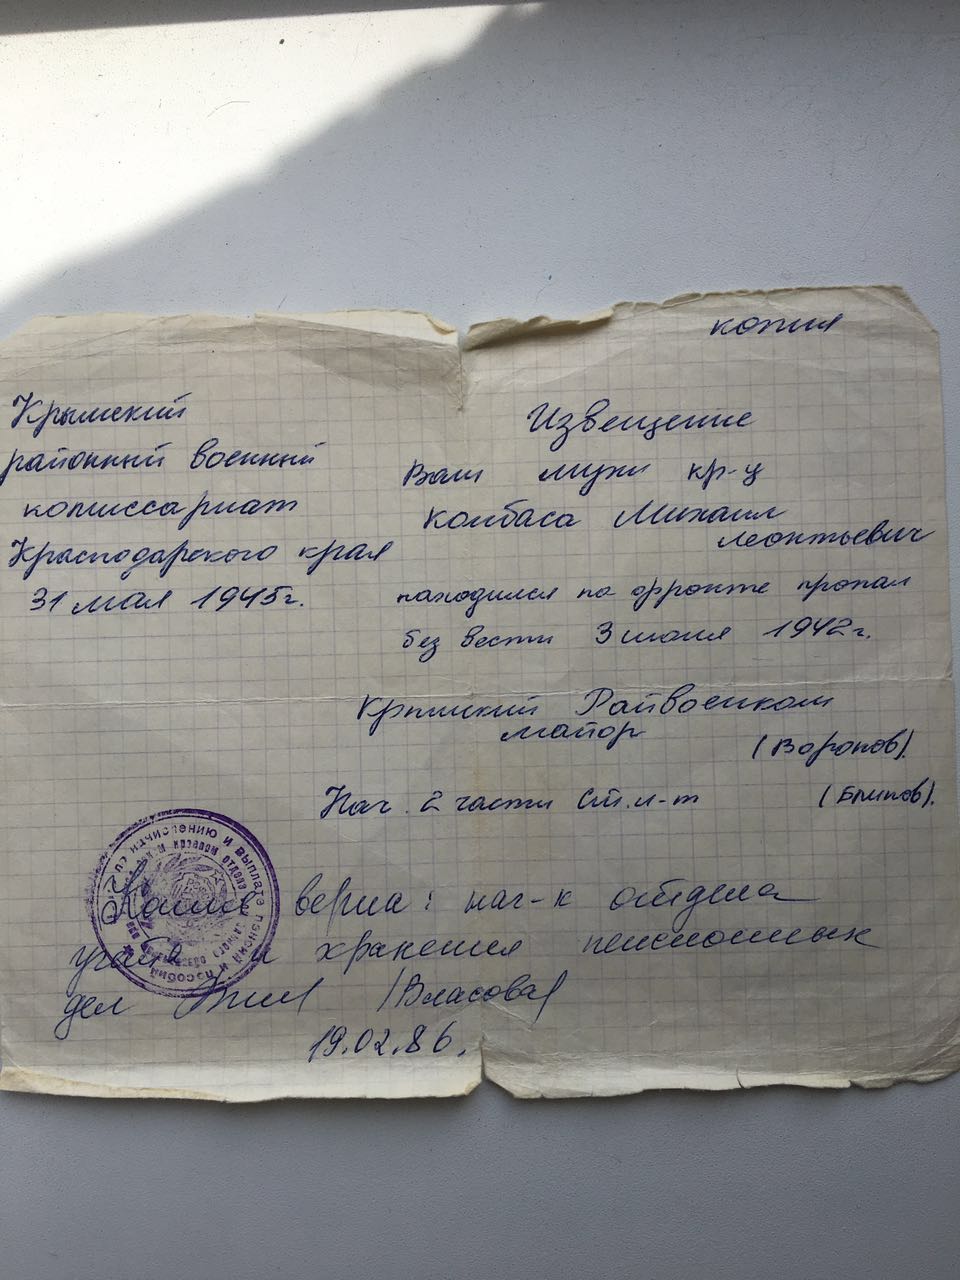 копия
Крымский
районный военный
комиссариат
Краснодарского края
31 мая 1945г.
Извещение
Ваш муж кр-ц
Колбаса Михаил
Леонтьевич
находился на фронте пропал
без вести 3 июля 1942г.
Крымский Райвоенком
майор
(Воронов).
Нач. 2 части Ст. л-т
(Блинов).
Копия верна: нач-к отдела
учета и хранения пенсионных
дел /Власова/
19.02.86.
по начислению и выплате пенсий и пособий
краевом отделе